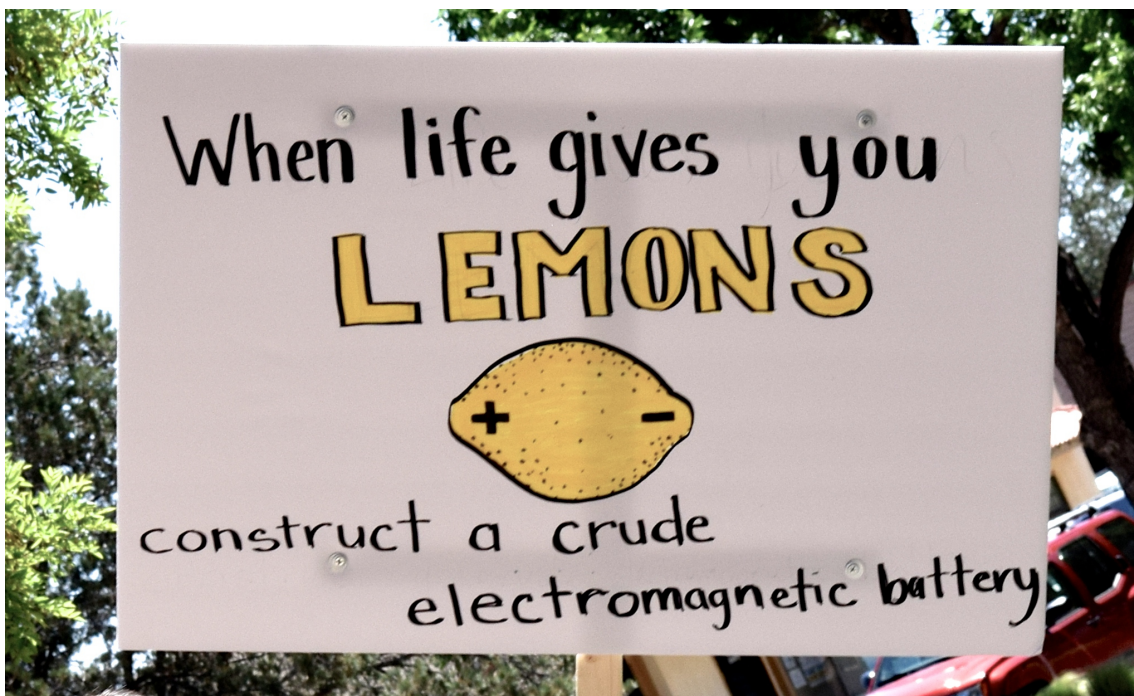 When life gives you
LEMONS
+ -
construct a crude
electromagnetic battery